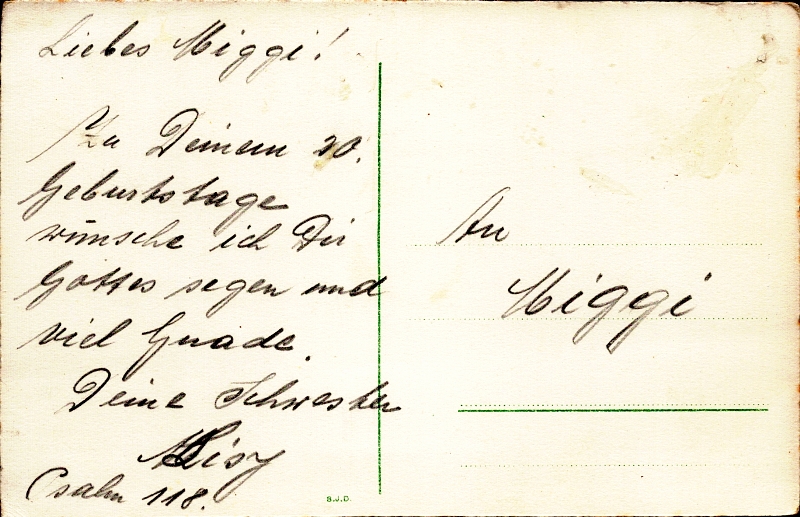 Liebes Miggi!
Zu Deinem 20.
Geburtstage
wünsche ich Dir
Gottes segen und
viel Gnade.
Deine Schwester
Lisy
Psalm 118.
An
Miggi
S.J.D.